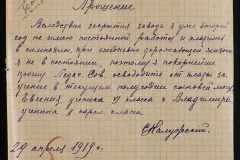 Прошение
Вследствие закрытия завода я уже второй
год не имею постоянной работы и платить
в гимназии, при ежедневно дорожающей жизни
я не в состоянии, поэтому я покорнейше
прошу Педаг. Сов. освободить от платы за
учение в текущем полугодии сыновей моих
Евгения, ученика VI класса и Владимира
ученика класса.
29 апреля 1919 г.